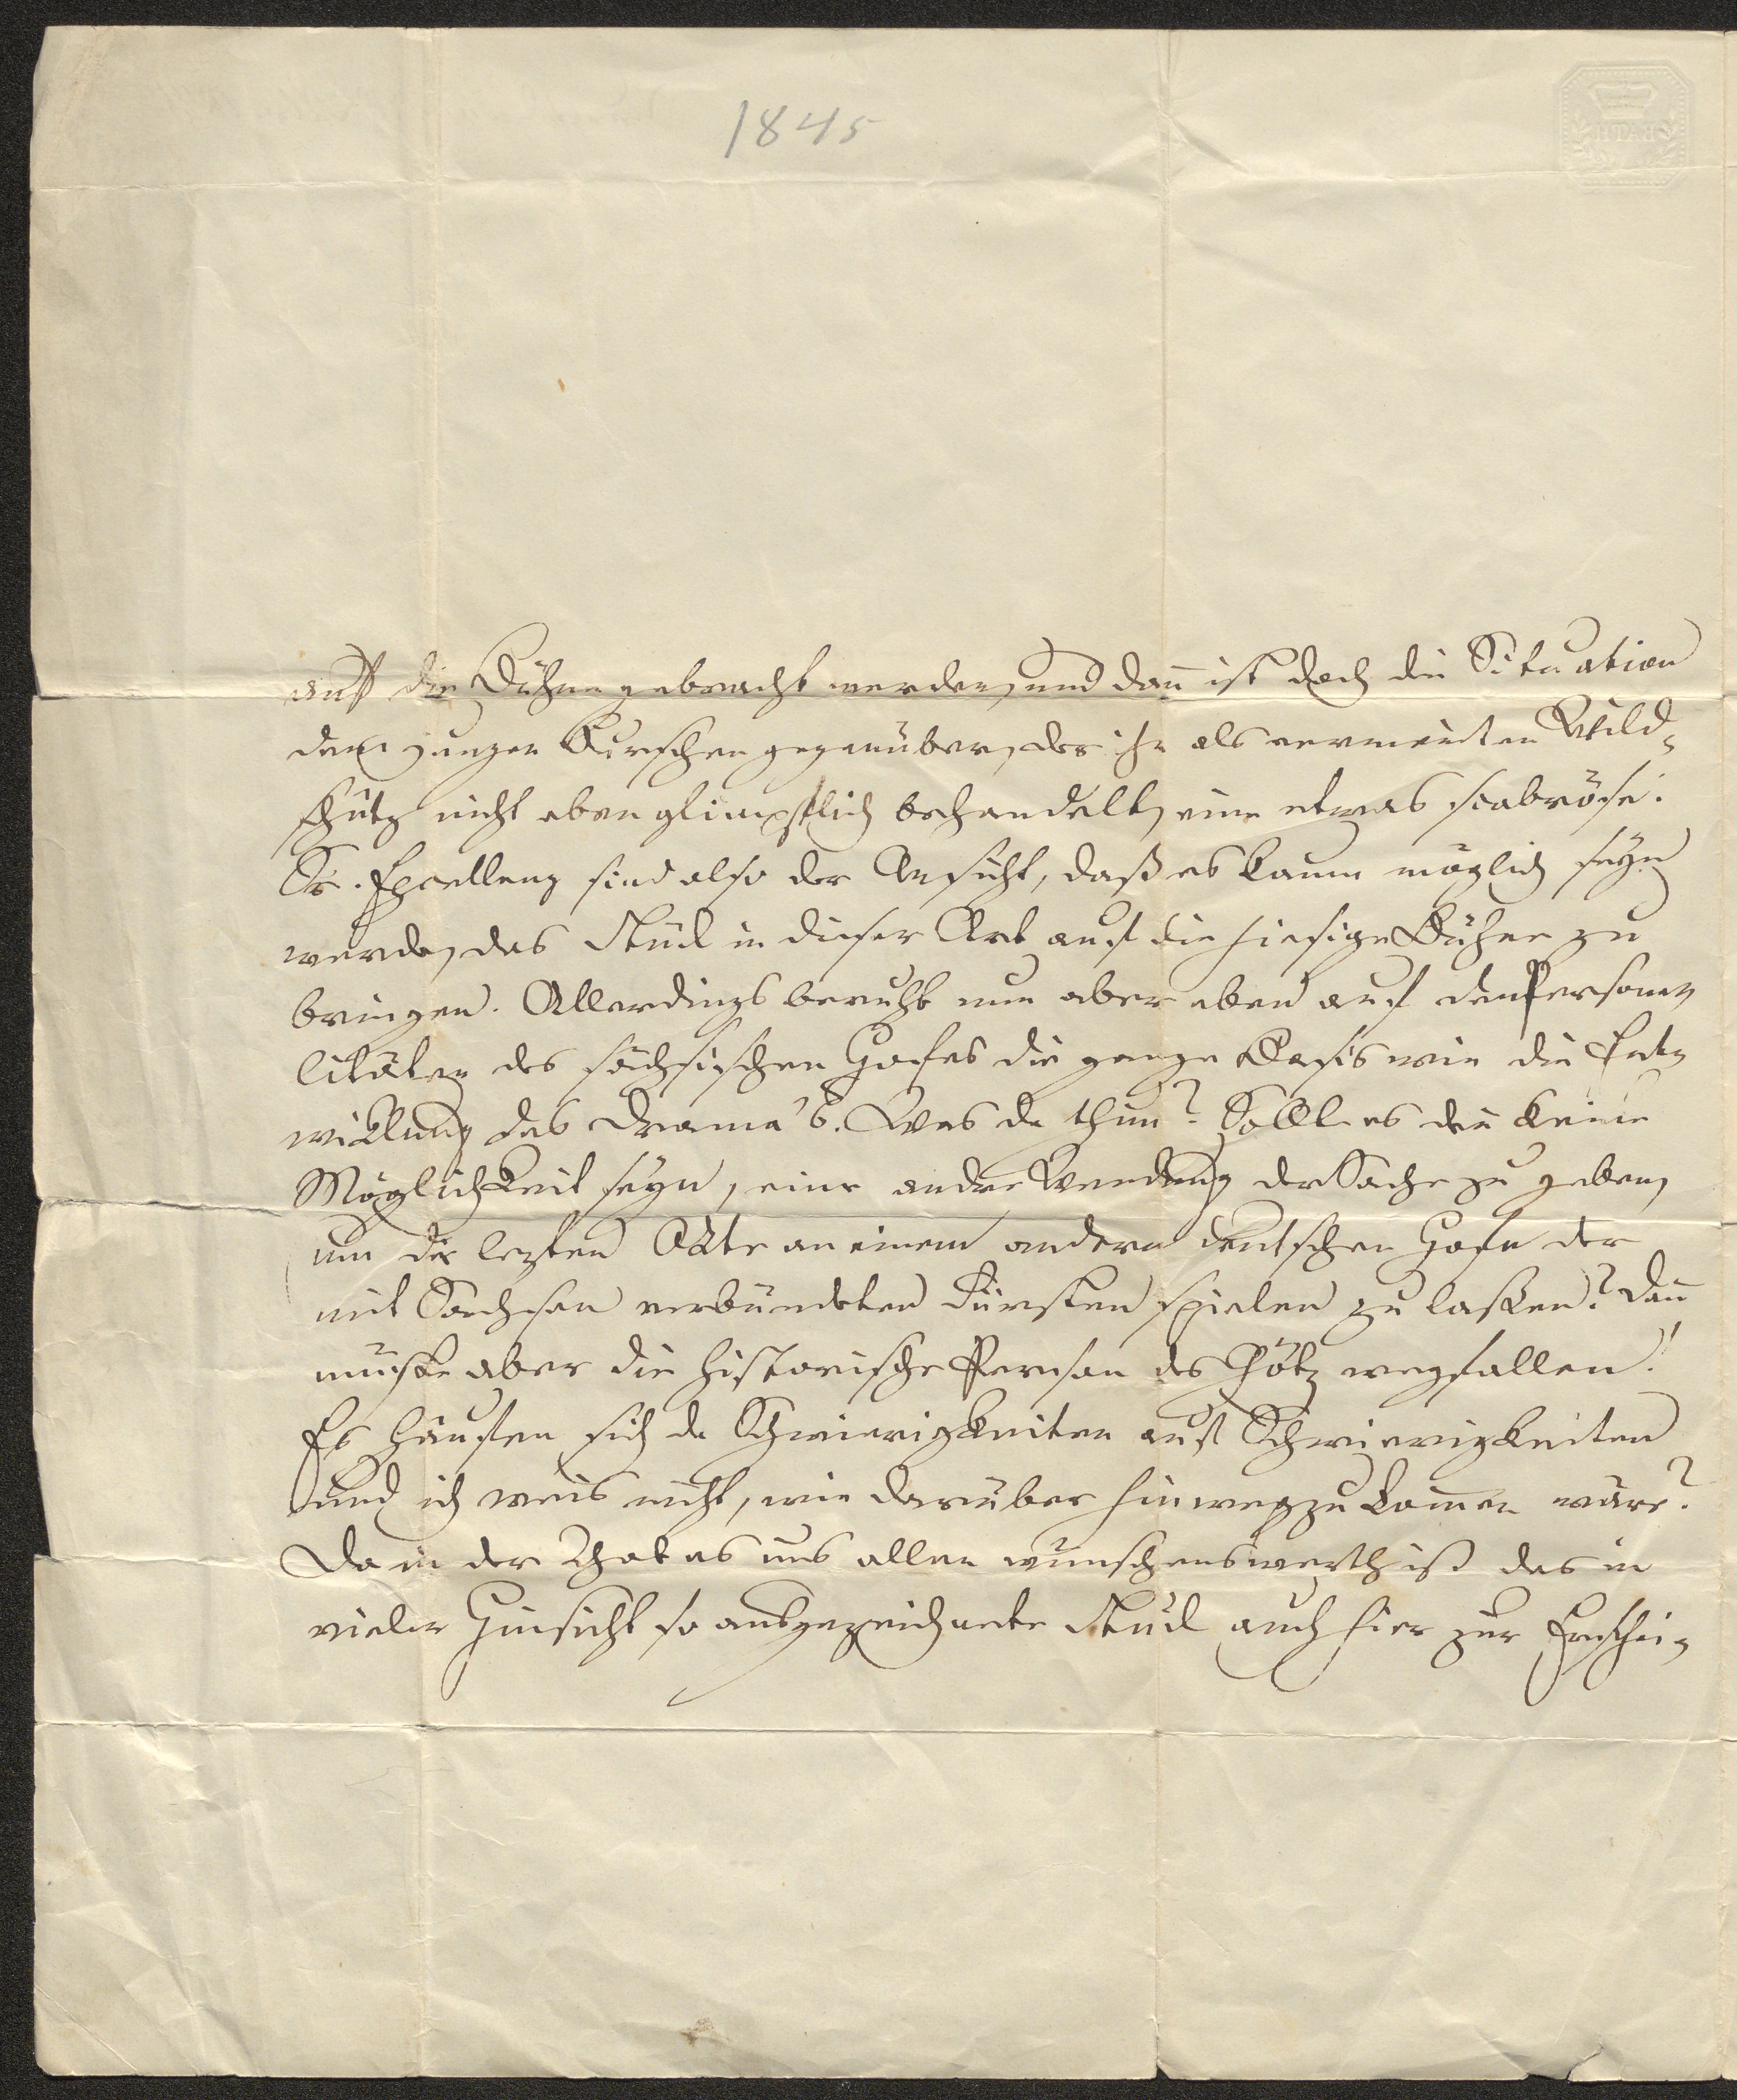 1845
BATH
auf die Bühne gebracht werden, und dan̄ ist doch die Situation
dem jungen Burschen gegenüber, der ihn als vermeinten Wild-
schütz nicht eben glimpflich behandelt, eine etwas scabröse.
Sr. Excellenz sind also der Ansicht, daß es kaum möglich seyn
werde, das Stück in dieser Art auf die hiesige Bühne zu
bringen. Allerdings beruht nun aber eben auf den Persona-
litäten des sächsischen Hofes die ganze Basis wie die Ent-
wicklung des Drama's. Was da thun? Sollte es den keine
Möglichkeit seyn, eine andre Wendung der Sache zu geben,
um die lezten Akte an einem andern deutschen Hofe der
mit Sachsen verbündeten Fürsten spielen zu lassen? Dan̄
müsste aber die historische Person des wegfallen!
Es häufen sich da Schwierigkeiten auf Schwierigkeiten
und ich weis nicht, wie darüber hinwegzukom̄en wäre?
Da in der That es uns allen wünschenswerth ist das in
vieler Hinsicht so ausgezeichnete Stück auch hier zur Erschei-